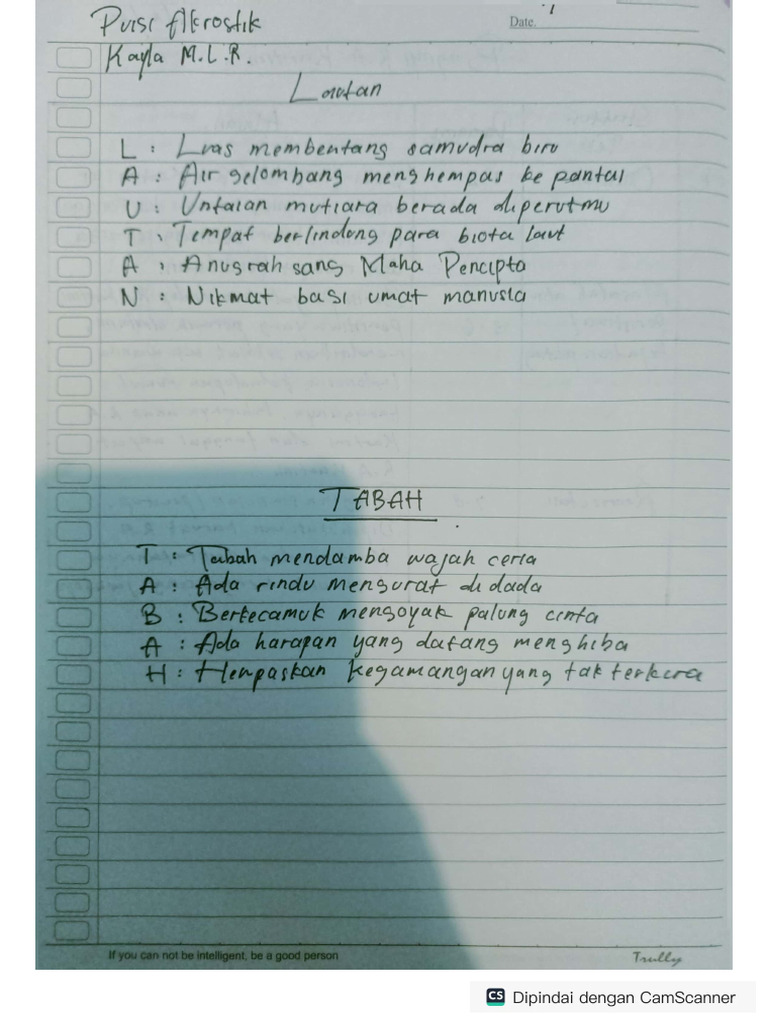 Puisi Akrostik
Date.
Kayla M.L.R.
Lautan
L : Luas membentang samudra biru
A : Air gelombang menghempas ke pantai
U : Untaian mutiara berada diperutmu
T : Tempat berlindung para biota laut
A : Anugrah sang Maha Pencipta
N : Nikmat bagi umat manusia
TABAH
T : Tabah mendamba wajah ceria
A : Ada rindu mengurat di dada
B : Berkecamuk mengoyak palung cinta
A : Ada harapan yang datang menghiba
H : Hempaskan kegamangan yang tak terkira
If you can not be intelligent, be a good person
Trully
CS Dipindai dengan CamScanner